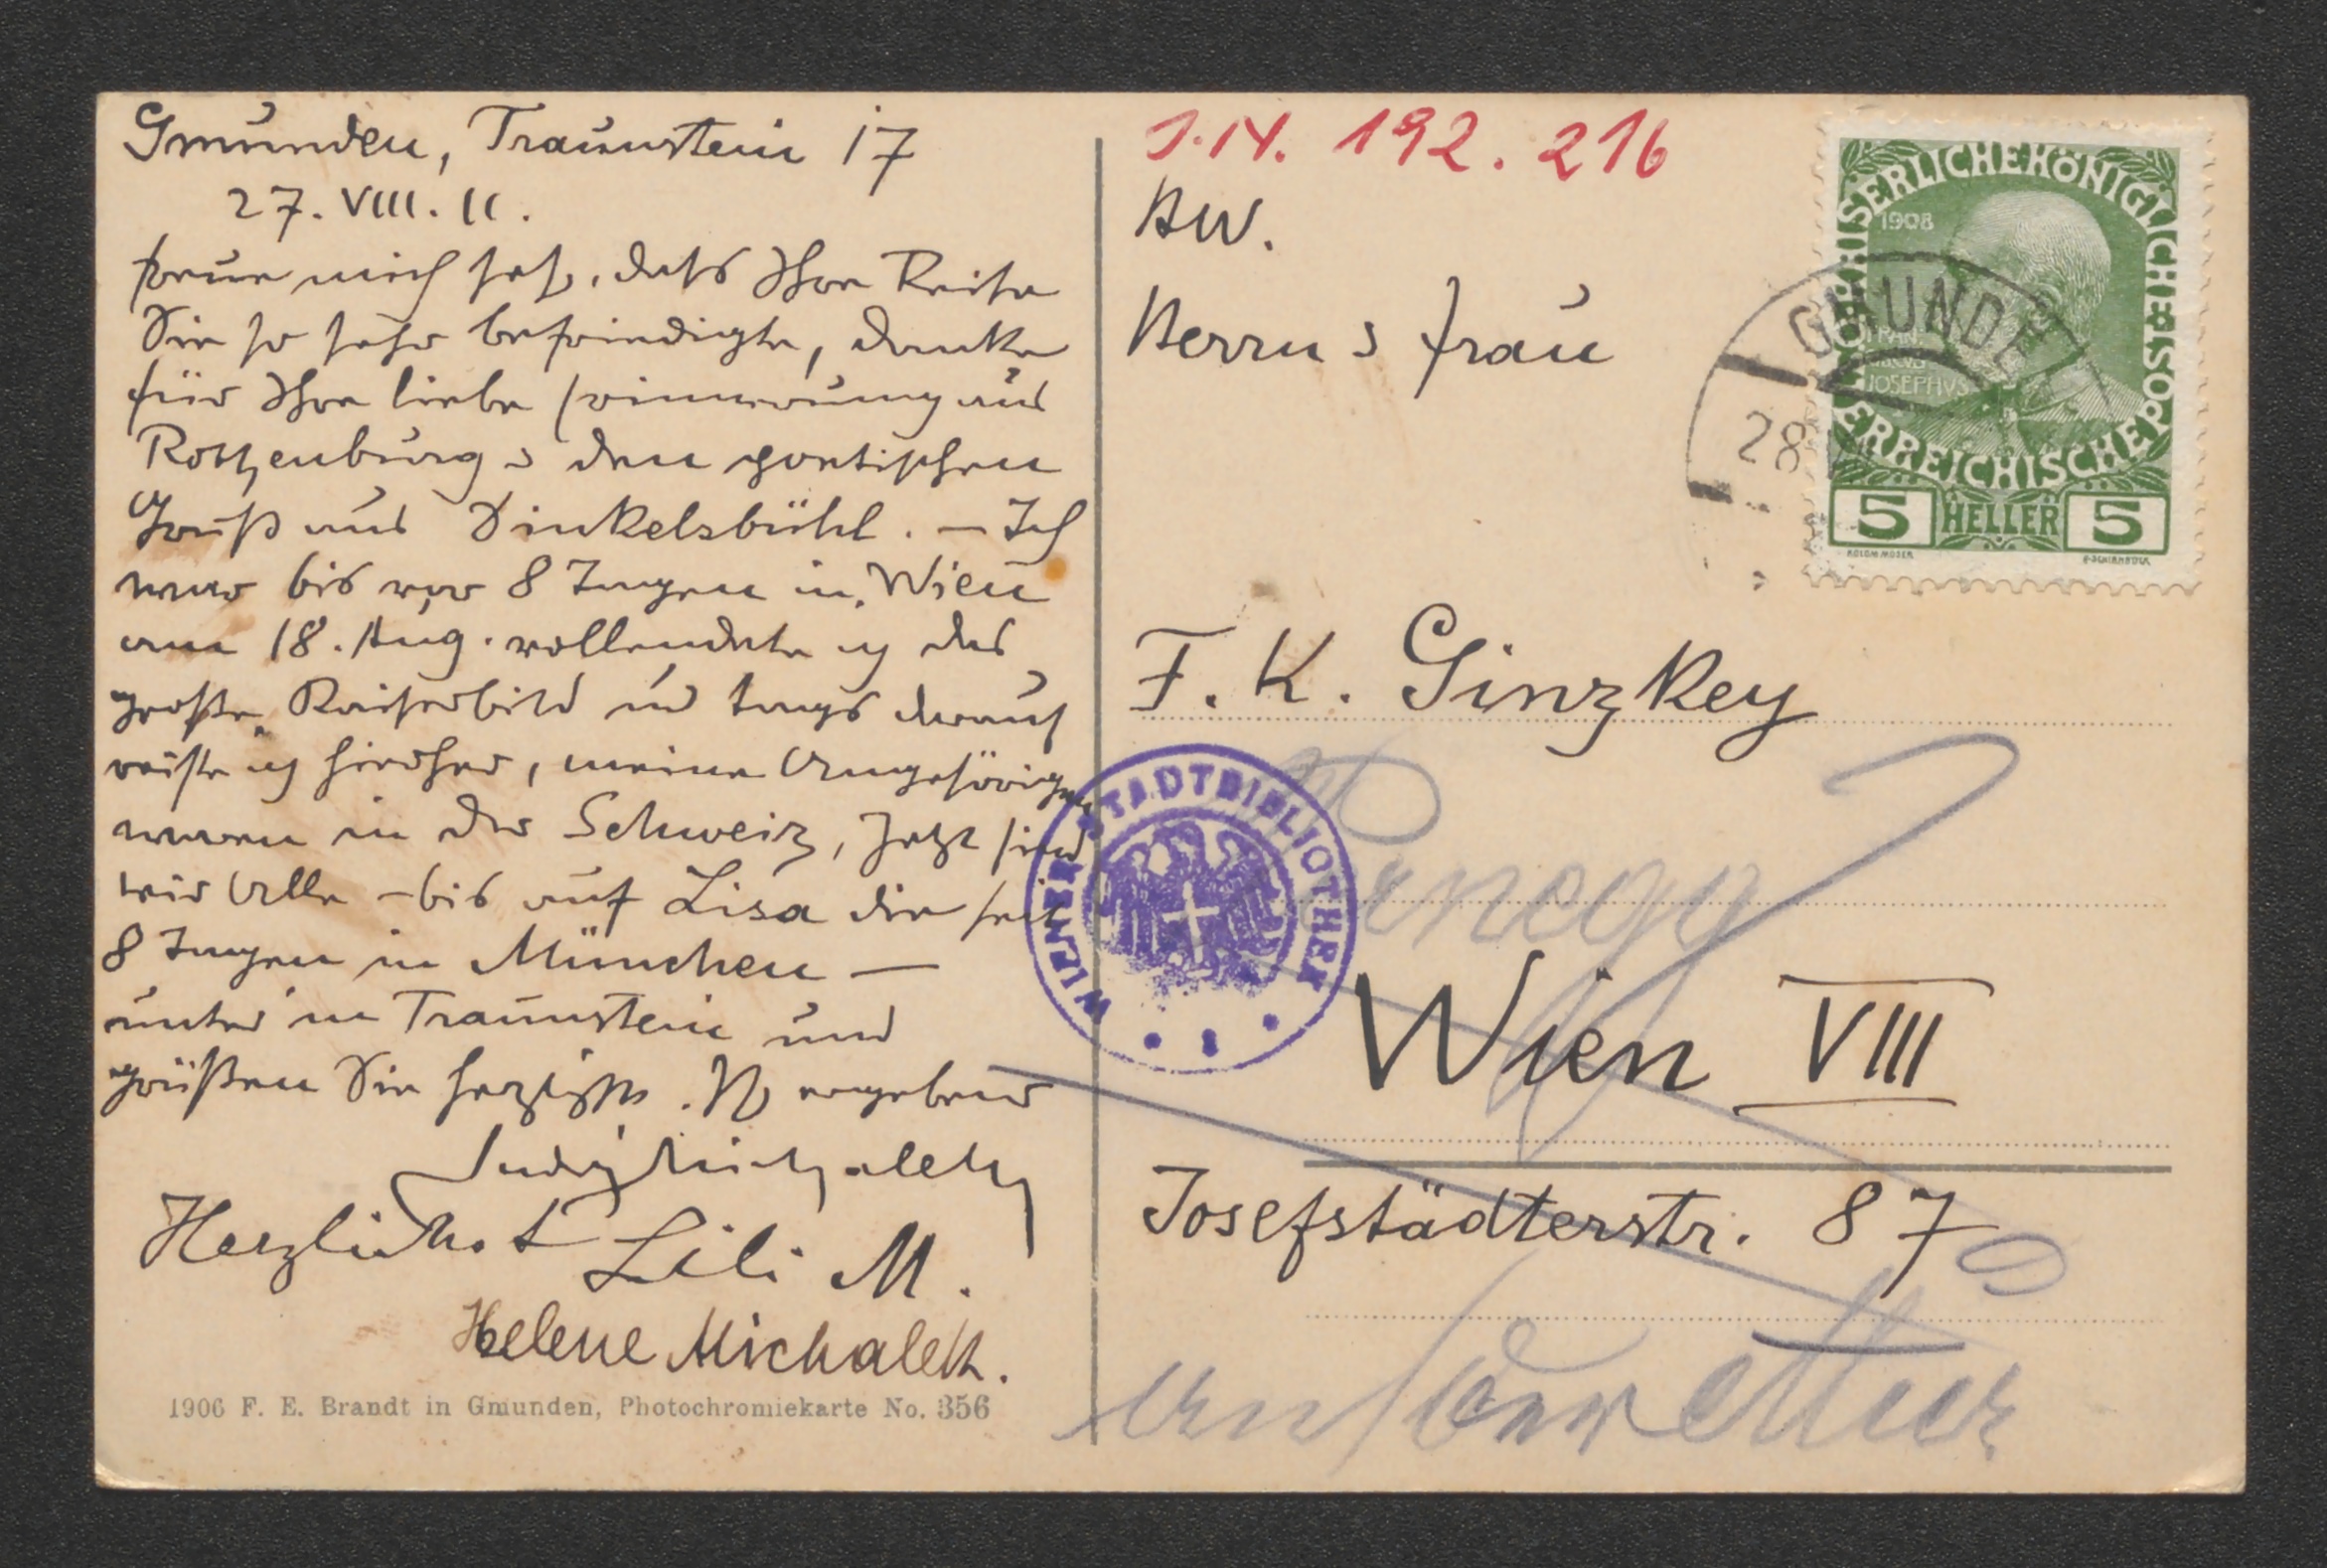 Gmunden, Traunstein 17
27. VIII. 11.
freue mich sehr, dass Ihre Reise
Sie so sehr befriedigte, danke
für Ihre liebe Erinnerung aus
Rothenburg u den poetischen
Gruß aus Dinkelsbühl. – Ich
war bis vor 8 Tagen in Wien
am 18. Aug. vollendete ich das
große Kaiserbild und tags darauf
reiste ich hierher, meine Angehörigen
waren in der Schweiz, jetzt sind
wir Alle – bis auf Lisa die seit
8 Tagen in München –
unter'm Traunstein und
grüßen Sie herzlichst. Ihr ergebener
Ludwig Michalek
Herzlichst Lili M.
Helene Michalek.
1906 F. E. Brandt in Gmunden, Photochromiekarte No. 356
J.N. 192.216
HW.
Herrn u Frau
F. K. Ginzkey
Pernegg
Wien VIII
Josefstädterstr. 87
an der Mur
KAISERLICHE KÖNIGLICHE ÖSTERREICHISCHE POST
1908
FRAN
JOSEPHVS
5 HELLER 5
KOLOM MOSER
F. SCHIRNBÖCK
GMUNDEN
28
WIENER STADTBIBLIOTHEK